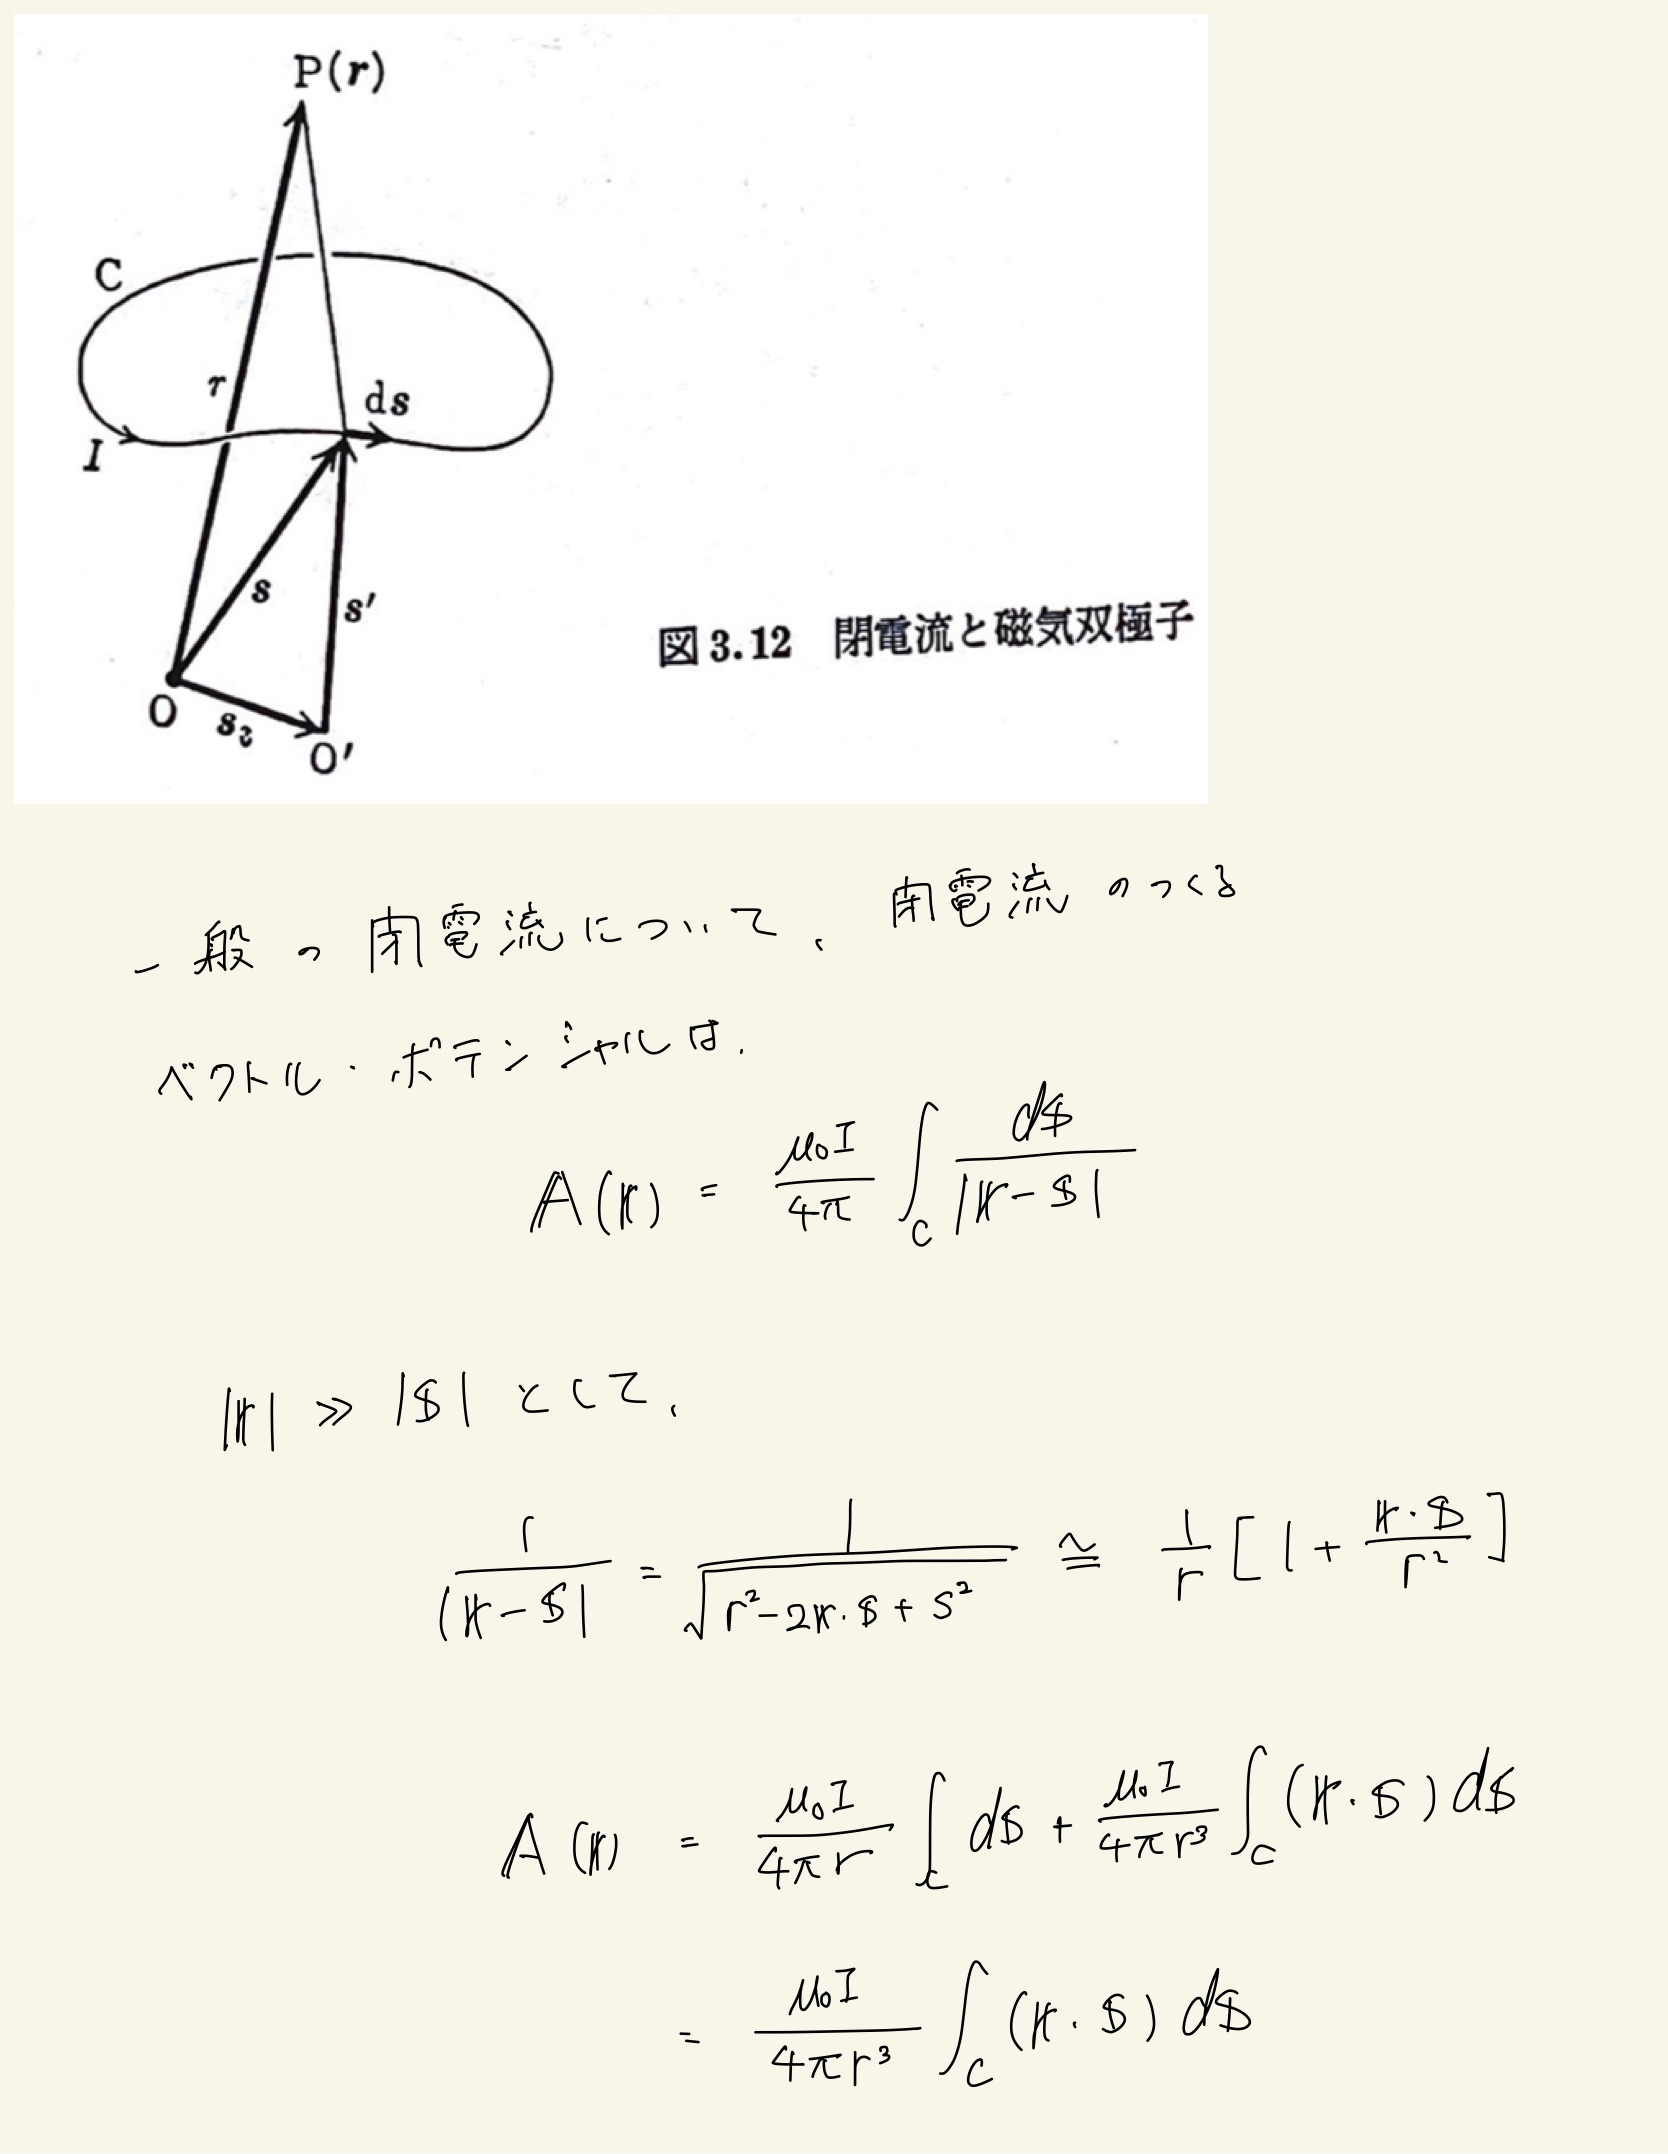 P(r)
C
r
ds
I
s
s′
図3.12 閉電流と磁気双極子
O
s₂
O′
一般の閉電流について、閉電流のつくる
ベクトル・ポテンシャルは、
A(r) = μ₀I/4π ∫_C ds/|r−s|
|r| ≫ |s| として、
1/|r−s| = 1/√(r²−2r·s+s²) ≅ 1/r [1 + r·s/r²]
A(r) = μ₀I/4πr ∫_C ds + μ₀I/4πr³ ∫_C (r·s) ds
= μ₀I/4πr³ ∫_C (r·s) ds